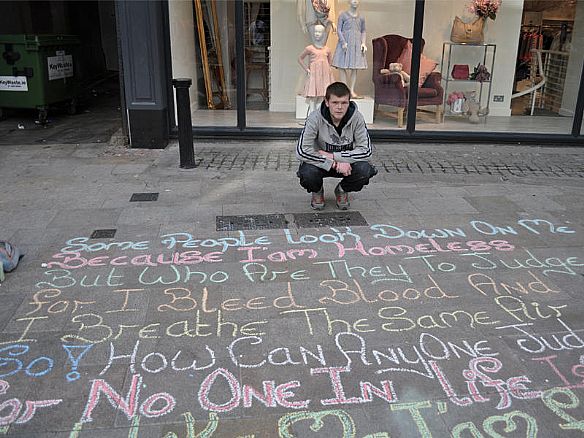 KeyWaste.ie
KeyWaste
Some People Look Down On Me
Because I am Homeless
But Who Are They To Judge
For I Bleed Blood And
I Breathe The Same Air
So! How Can AnyOne Jud
For No One In Life Is